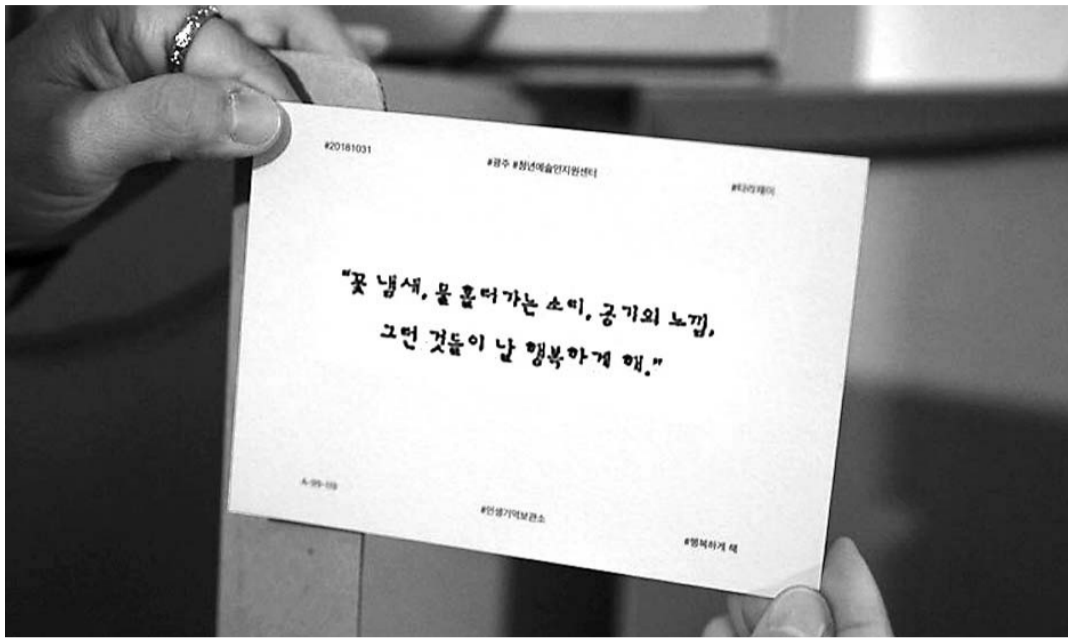 #20181031
#광주 #청년예술인지원센터
#타라재이
"꽃 냄새, 물 흘러가는 소리, 공기의 느낌,
그런 것들이 날 행복하게 해."
#인생기억보관소
#행복하게 해